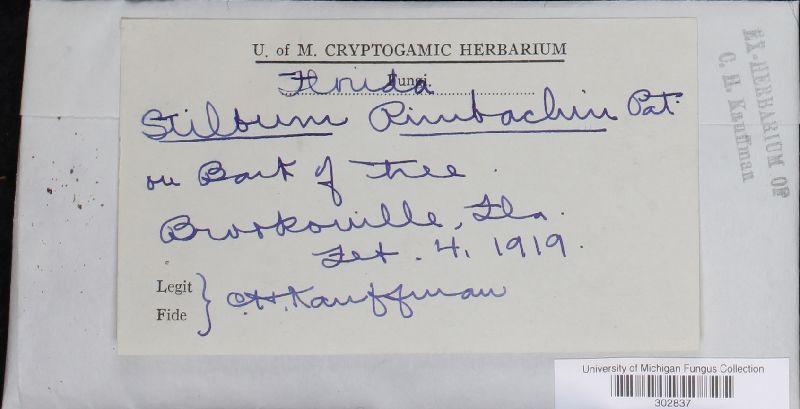 U. of M. CRYPTOGAMIC HERBARIUM
Fungi
Florida
Stilbum Rimbachii Pat.
on Bark of tree.
Brooksville, Fla.
Feb. 4, 1919.
Legit
Fide
C.H. Kauffman
EX-HERBARIUM OF
C. H. Kauffman
University of Michigan Fungus Collection
302837